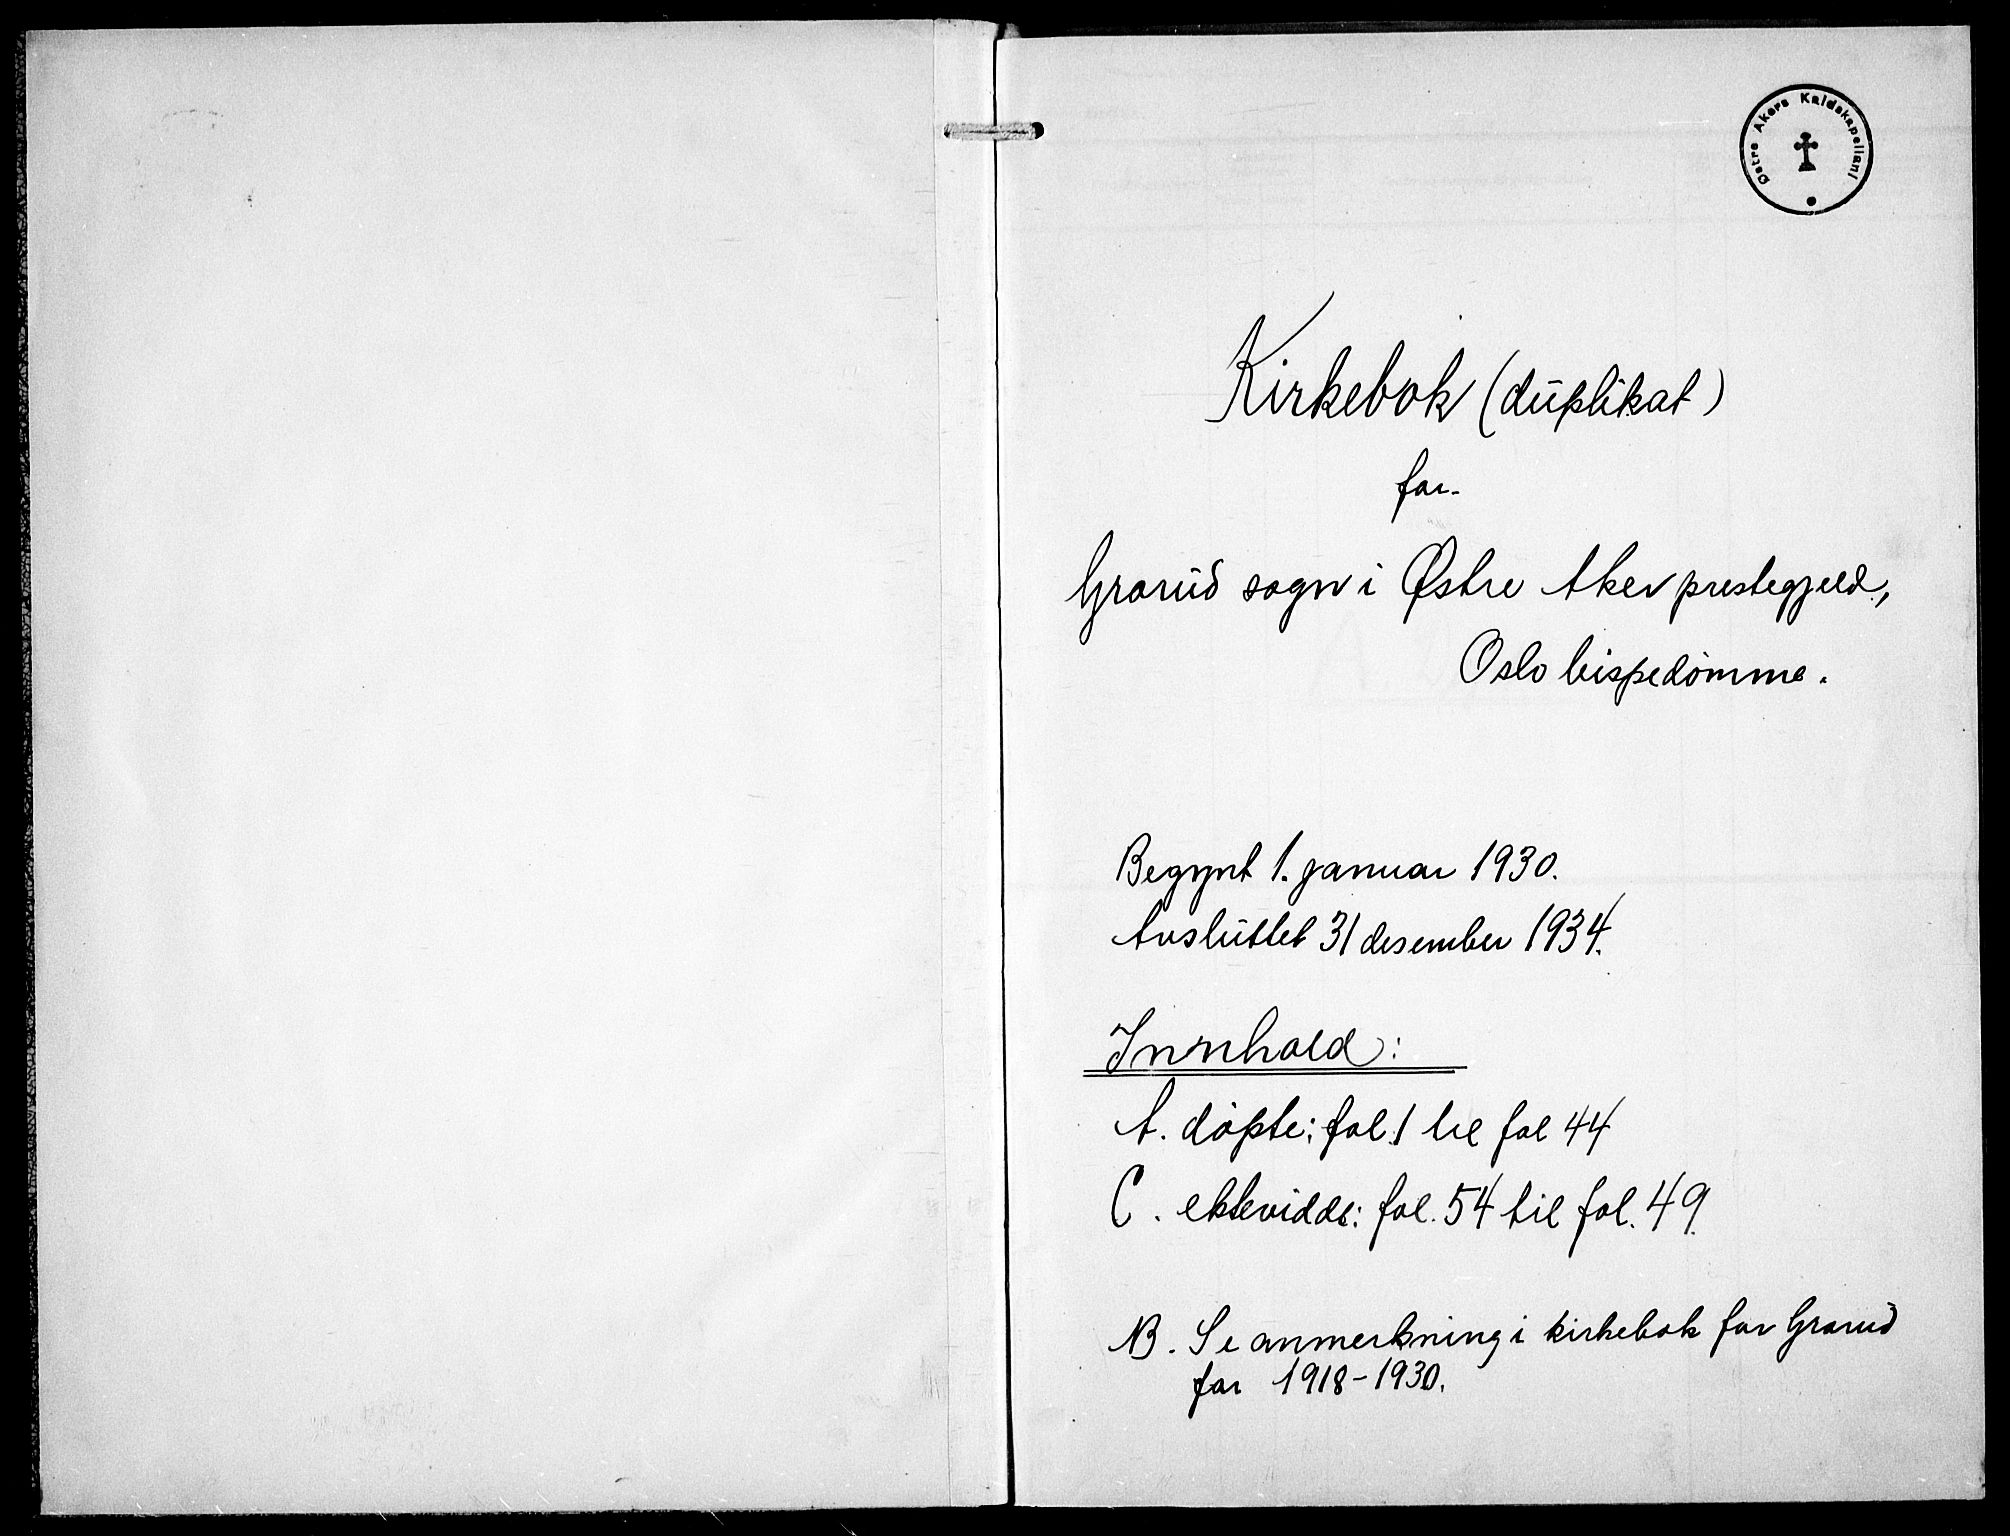 Østre Akers Kaldskapellani
Kirkebok (duplikat)
for
Grorud sogn i Østre Aker prestegjeld,
Oslo bispedømme.
Begynt 1. januar 1930.
Avsluttet 31 desember 1934.
Innhold:
A. døpte: fol. 1 til fol 44
C. ektevidde: fol. 54 til fol. 49.
NB. Se anmerkning i kirkebok for Grorud
for 1918-1930.